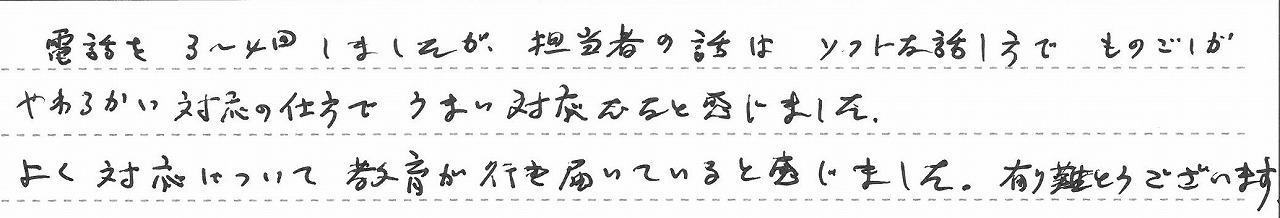 電話を3〜4回しましたが、担当者の話はソフトな話し方でものごしが
やわらかい対応の仕方でうまい対応だなと感じました。
よく対応について教育が行き届いていると感じました。有り難とうございます